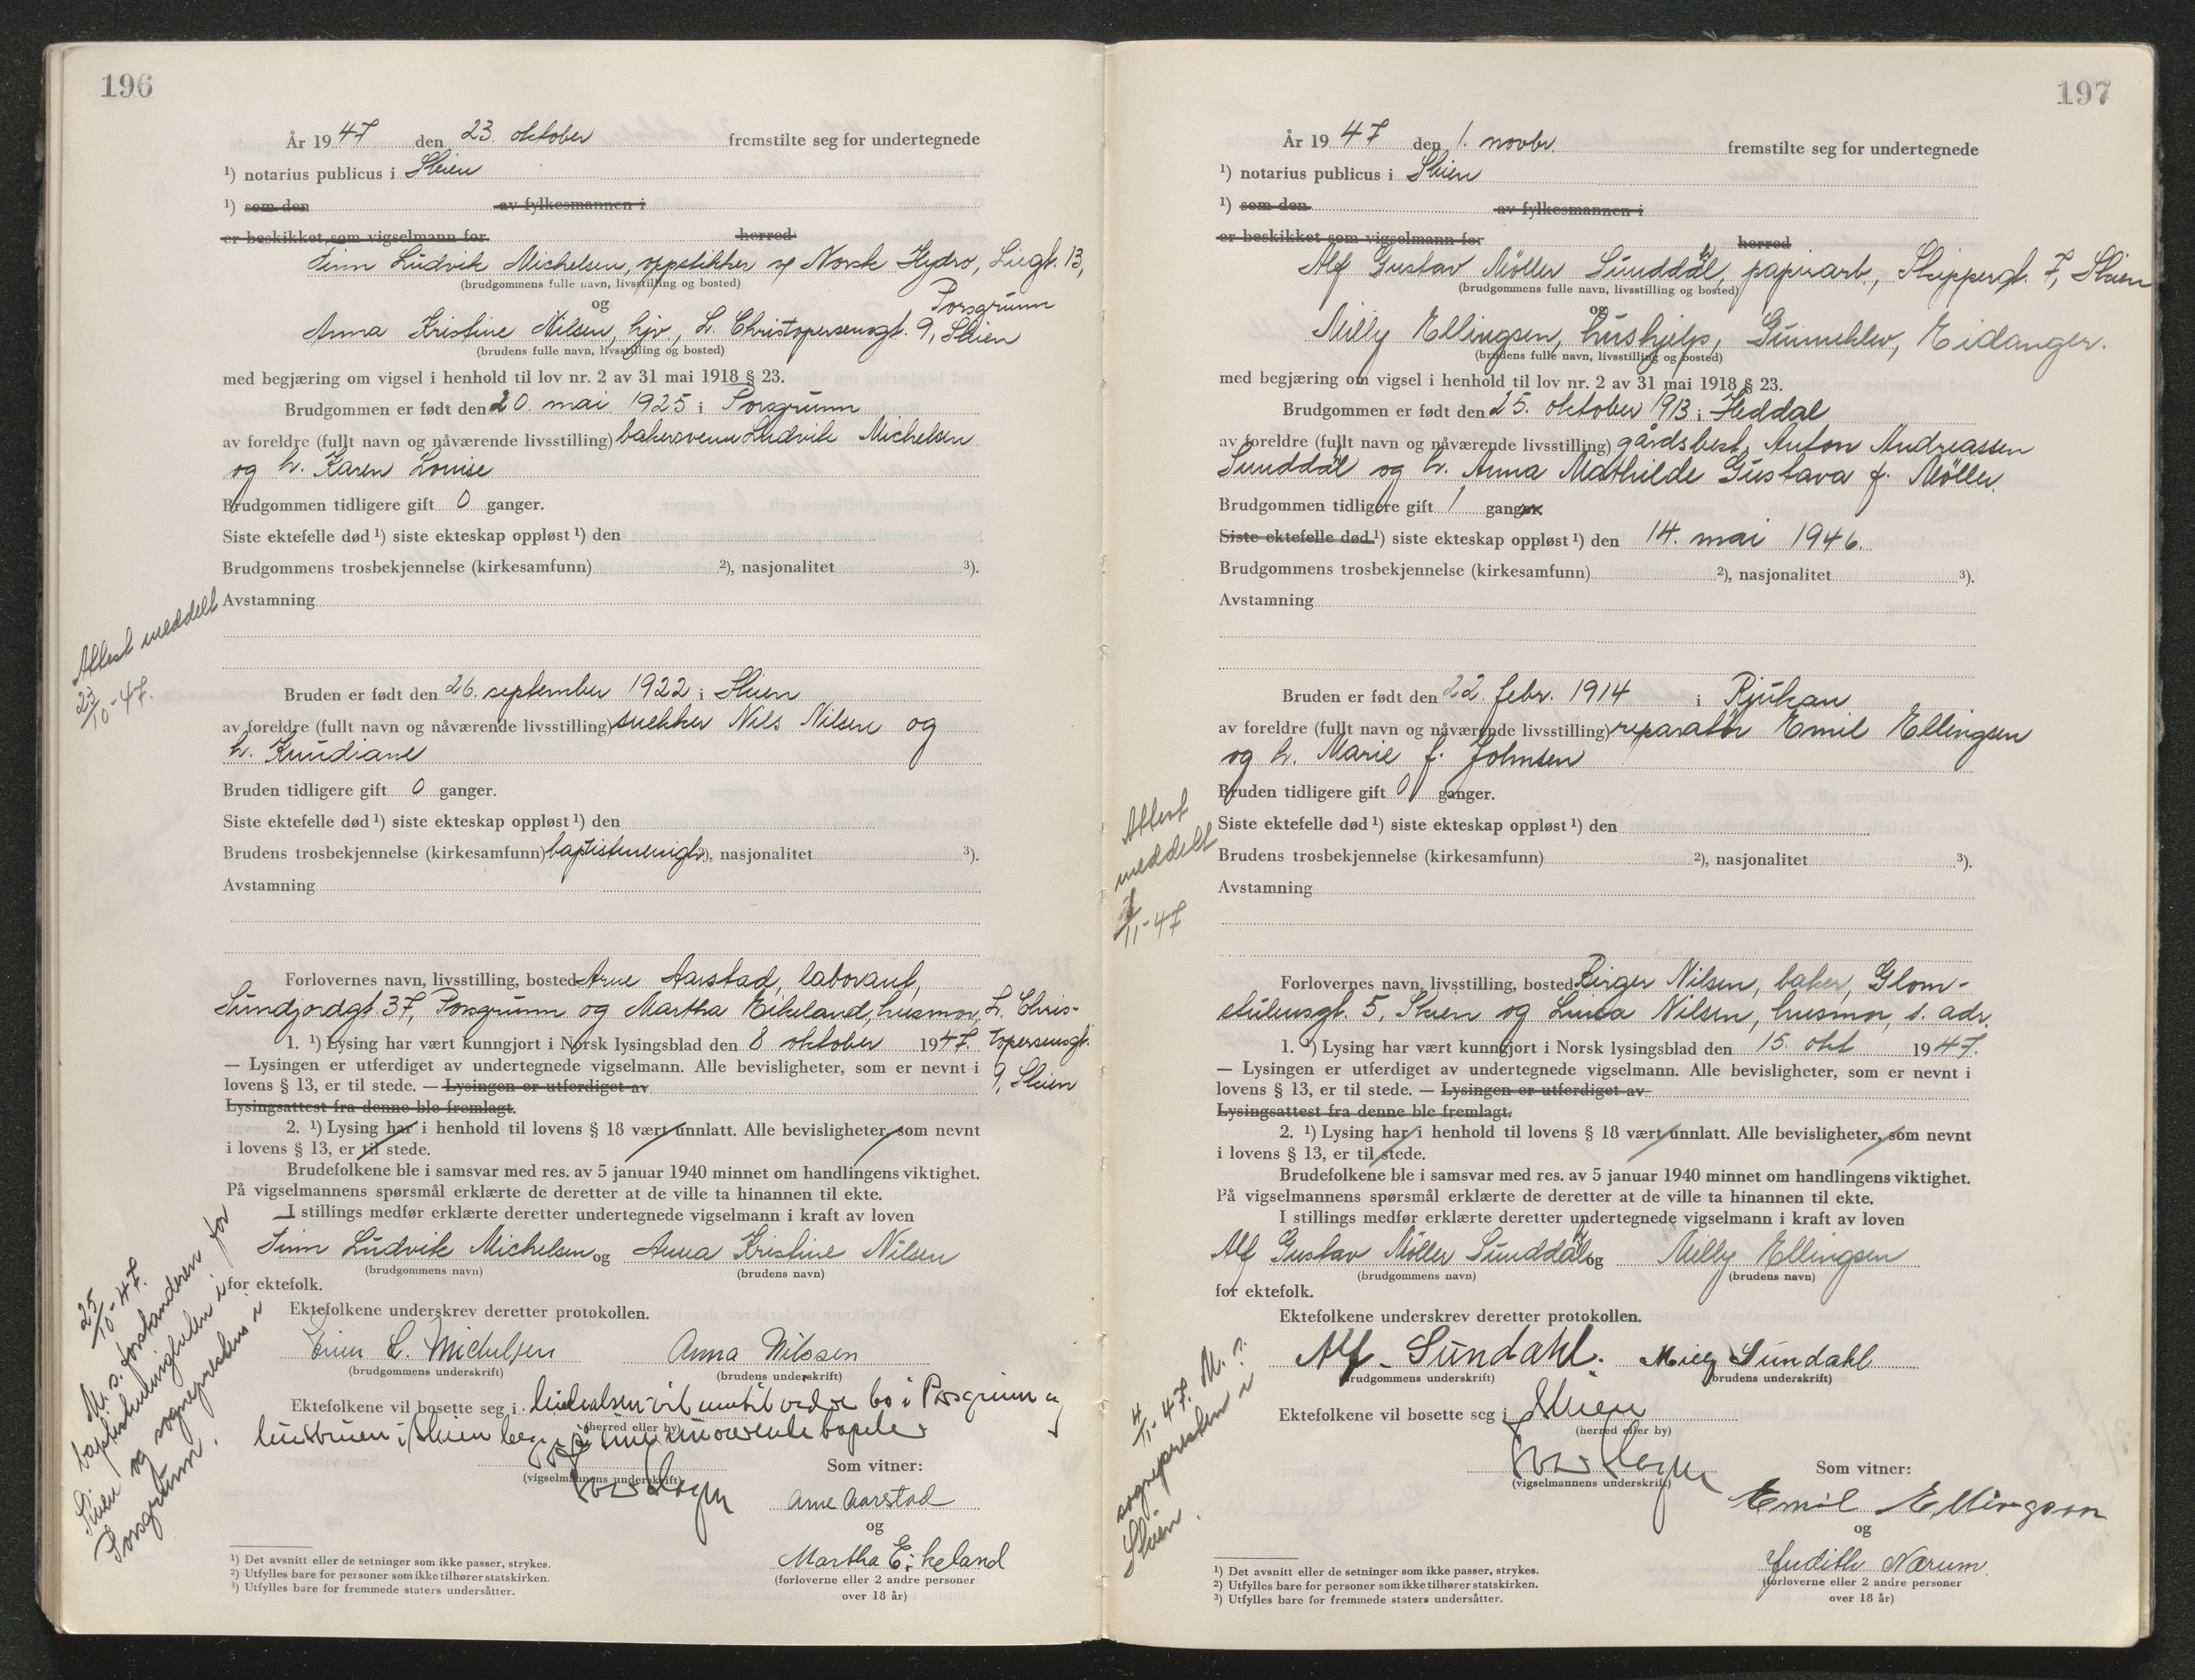 196
År 1947 den 23. oktober fremstilte seg for undertegnede
1) notarius publicus i Skien
1) som den av fylkesmannen i
er beskikket som vigselmann for herred
Finn Ludvik Michelsen, oppstikker v/ Norsk Hydro, Liegt. 13,
(brudgommens fulle navn, livsstilling og bosted)
Porsgrunn
og
Anna Kristine Nilsen, hjv., L. Christopersensgt. 9, Skien
(brudens fulle navn, livsstilling og bosted)
med begjæring om vigsel i henhold til lov nr. 2 av 31 mai 1918 § 23.
Brudgommen er født den 20. mai 1925 i Porsgrunn
av foreldre (fullt navn og nåværende livsstilling) bakersvenn Ludvik Michelsen
og h. Karen Louise
Brudgommen tidligere gift 0 ganger.
Siste ektefelle død 1) siste ekteskap oppløst 1) den
Brudgommens trosbekjennelse (kirkesamfunn) 2), nasjonalitet 3).
Avstamning
Attest meddelt
23/10-47.
Bruden er født den 26. september 1922 i Skien
av foreldre (fullt navn og nåværende livsstilling) snekker Nils Nilsen og
h. Knudiane
Bruden tidligere gift 0 ganger.
Siste ektefelle død 1) siste ekteskap oppløst 1) den
Brudens trosbekjennelse (kirkesamfunn) baptistmenigh. 2), nasjonalitet 3).
Avstamning
Forlovernes navn, livsstilling, bosted Arne Aarstad, laborant,
Sundjordgt. 37, Porsgrunn og Martha Eikeland, husmor, L. Chris-
topersensgt.
9, Skien
1. 1) Lysing har vært kunngjort i Norsk lysingsblad den 8 oktober 1947.
— Lysingen er utferdiget av undertegnede vigselmann. Alle bevisligheter, som er nevnt i
lovens § 13, er til stede. — Lysingen er utferdiget av
Lysingsattest fra denne ble fremlagt.
2. 1) Lysing har i henhold til lovens § 18 vært unnlatt. Alle bevisligheter, som nevnt
i lovens § 13, er til stede.
Brudefolkene ble i samsvar med res. av 5 januar 1940 minnet om handlingens viktighet.
På vigselmannens spørsmål erklærte de deretter at de ville ta hinannen til ekte.
I stillings medfør erklærte deretter undertegnede vigselmann i kraft av loven
Finn Ludvik Michelsen og Anna Kristine Nilsen
(brudgommens navn) (brudens navn)
for ektefolk.
Ektefolkene underskrev deretter protokollen.
Finn L. Michelsen Anna Nilssen
(brudgommens underskrift) (brudens underskrift)
Ektefolkene vil bosette seg i vil inntil videre bo i Porsgrunn og
(herred eller by)
hustruen i Skien
(vigselmannens underskrift)
Som vitner:
Arne Aarstad
og
Martha Eikeland
(forloverne eller 2 andre personer
over 18 år)
25/10-47.
M. s. forstanderen for
baptistmenigheten i
Skien og sognepresten i
Porsgrunn.
1) Det avsnitt eller de setninger som ikke passer, strykes.
2) Utfylles bare for personer som ikke tilhører statskirken.
3) Utfylles bare for fremmede staters undersåtter.
197
År 1947 den 1. novbr. fremstilte seg for undertegnede
1) notarius publicus i Skien
1) som den av fylkesmannen i
er beskikket som vigselmann for herred
Alf Gustav Möller Sunddal, papirarb., Skippergt. 7, Skien
(brudgommens fulle navn, livsstilling og bosted)
og
Milly Ellingsen, hushjelp, Gunneklev, Eidanger.
(brudens fulle navn, livsstilling og bosted)
med begjæring om vigsel i henhold til lov nr. 2 av 31 mai 1918 § 23.
Brudgommen er født den 25. oktober 1913 i Heddal
av foreldre (fullt navn og nåværende livsstilling) gårdsbest. Anton Andreassen
Sunddal og h. Anna Mathilde Gustava f. Möller.
Brudgommen tidligere gift 1 ganger
Siste ektefelle død 1) siste ekteskap oppløst 1) den 14. mai 1946.
Brudgommens trosbekjennelse (kirkesamfunn) 2), nasjonalitet 3).
Avstamning
Bruden er født den 22. febr. 1914 i Rjukan
av foreldre (fullt navn og nåværende livsstilling) reparatör Emil Ellingsen
og h. Marie f. Johnsen
Bruden tidligere gift 0 ganger.
Siste ektefelle død 1) siste ekteskap oppløst 1) den
Brudens trosbekjennelse (kirkesamfunn) 2), nasjonalitet 3).
Avstamning
Attest
meddelt
/11-47
Forlovernes navn, livsstilling, bosted Birger Nilsen, baker, Glom-
stulensgt. 5, Skien og Nilsen, husmor, s. adr.
1. 1) Lysing har vært kunngjort i Norsk lysingsblad den 15. okt 1947.
— Lysingen er utferdiget av undertegnede vigselmann. Alle bevisligheter, som er nevnt i
lovens § 13, er til stede. — Lysingen er utferdiget av
Lysingsattest fra denne ble fremlagt.
2. 1) Lysing har i henhold til lovens § 18 vært unnlatt. Alle bevisligheter, som nevnt
i lovens § 13, er til stede.
Brudefolkene ble i samsvar med res. av 5 januar 1940 minnet om handlingens viktighet.
På vigselmannens spørsmål erklærte de deretter at de ville ta hinannen til ekte.
I stillings medfør erklærte deretter undertegnede vigselmann i kraft av loven
Alf Gustav Möller Sunddal og Milly Ellingsen
(brudgommens navn) (brudens navn)
for ektefolk.
Ektefolkene underskrev deretter protokollen.
Alf Sundahl. Milly Sundahl
(brudgommens underskrift) (brudens underskrift)
Ektefolkene vil bosette seg i Skien
(herred eller by)
(vigselmannens underskrift)
Som vitner:
Emil Ellingsen
og
Judith Narum
(forloverne eller 2 andre personer
over 18 år)
4/11-47. M. s.
sognepresten i
Skien.
1) Det avsnitt eller de setninger som ikke passer, strykes.
2) Utfylles bare for personer som ikke tilhører statskirken.
3) Utfylles bare for fremmede staters undersåtter.